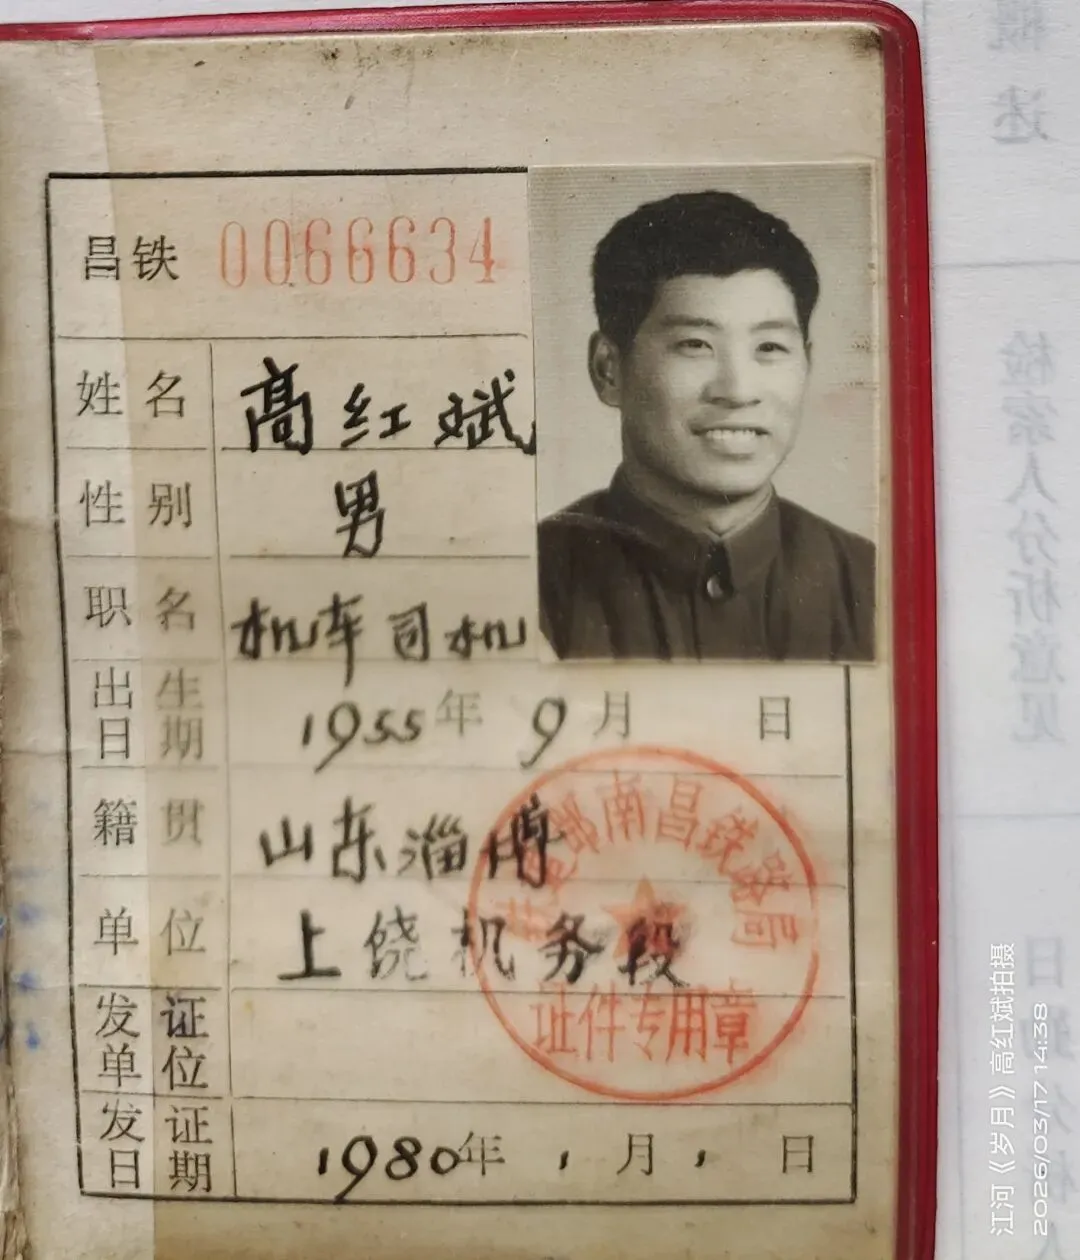 昌铁 0066634
姓名 高红斌
性别 男
职名 机车司机
出生日期 1955年9月 日
籍贯 山东淄博
单位 上饶机务段
发证单位
南昌铁路局
证件专用章
发证日期 1980年1月1日
概述
检索人分析意见
江河《岁月》高红斌拍摄
2026/03/17 14:38